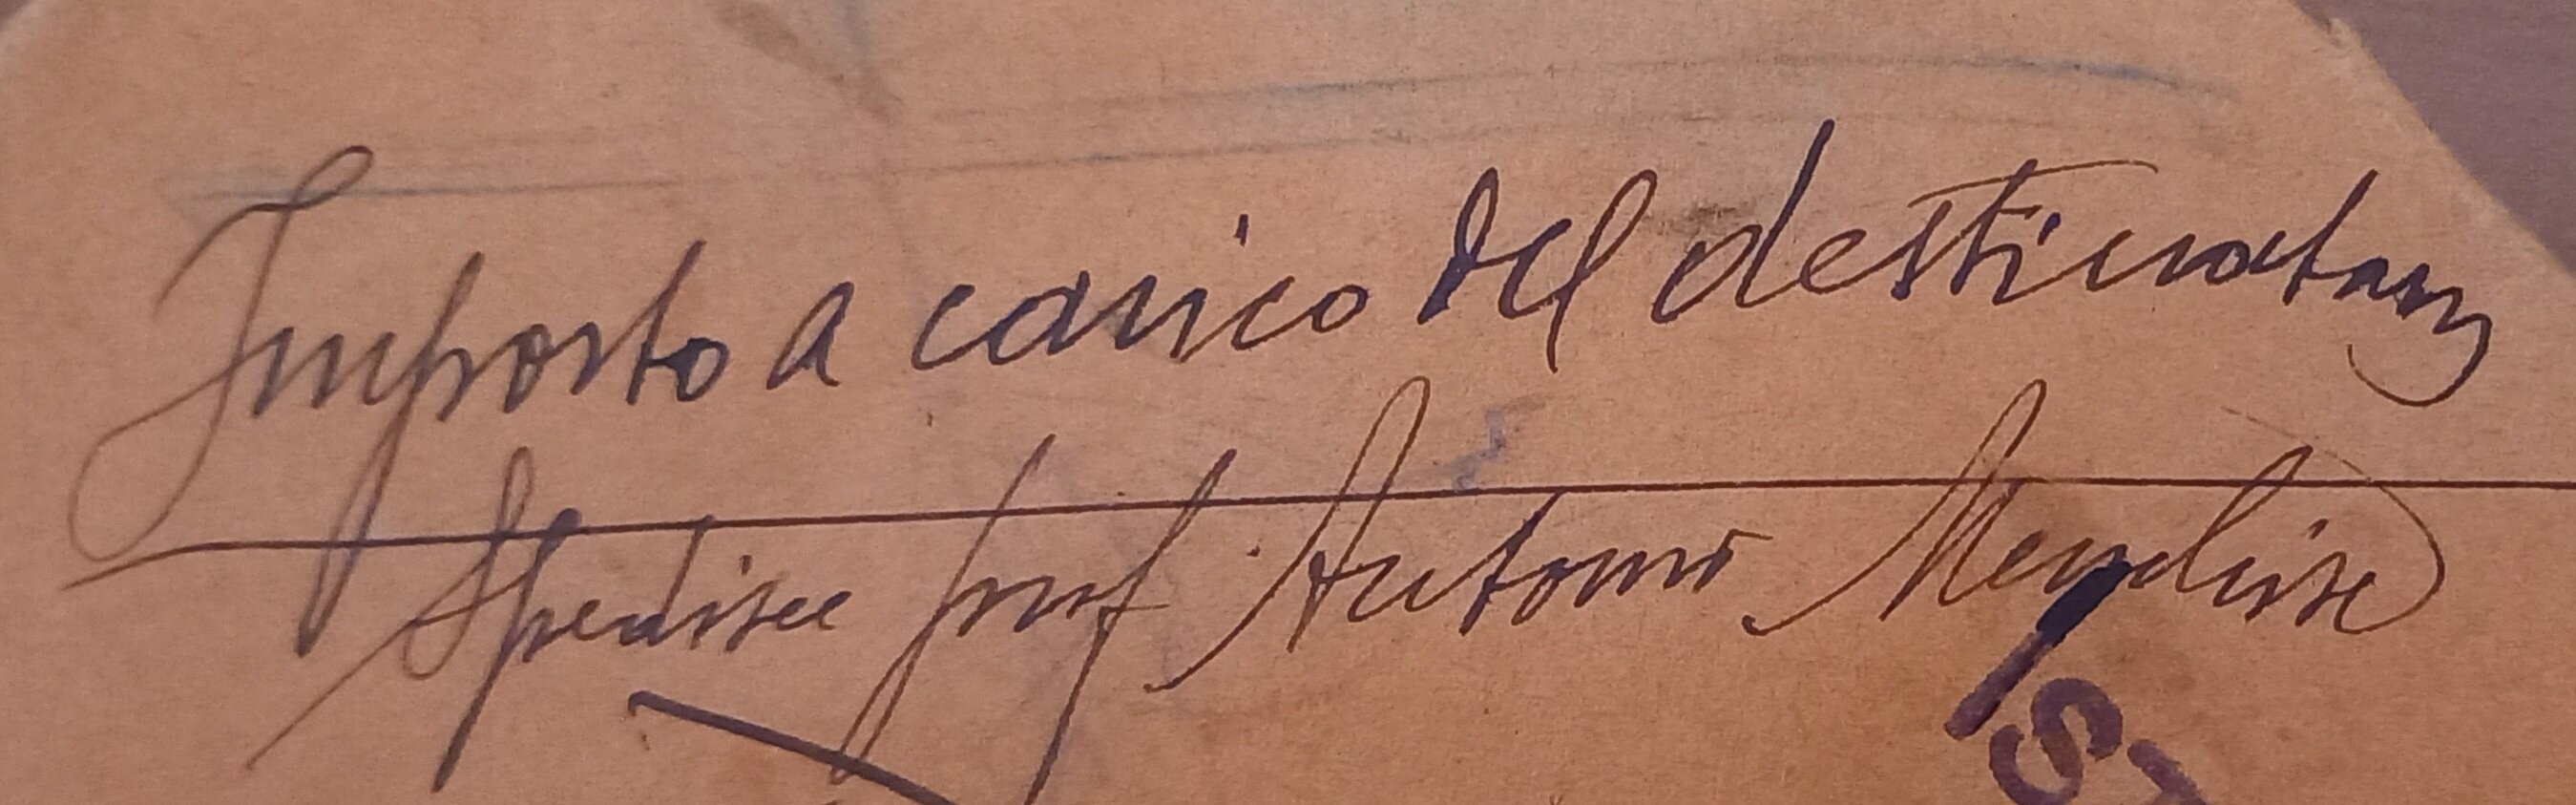 Imposto a carico del destinatario
Spedisce prof Antonio
IST